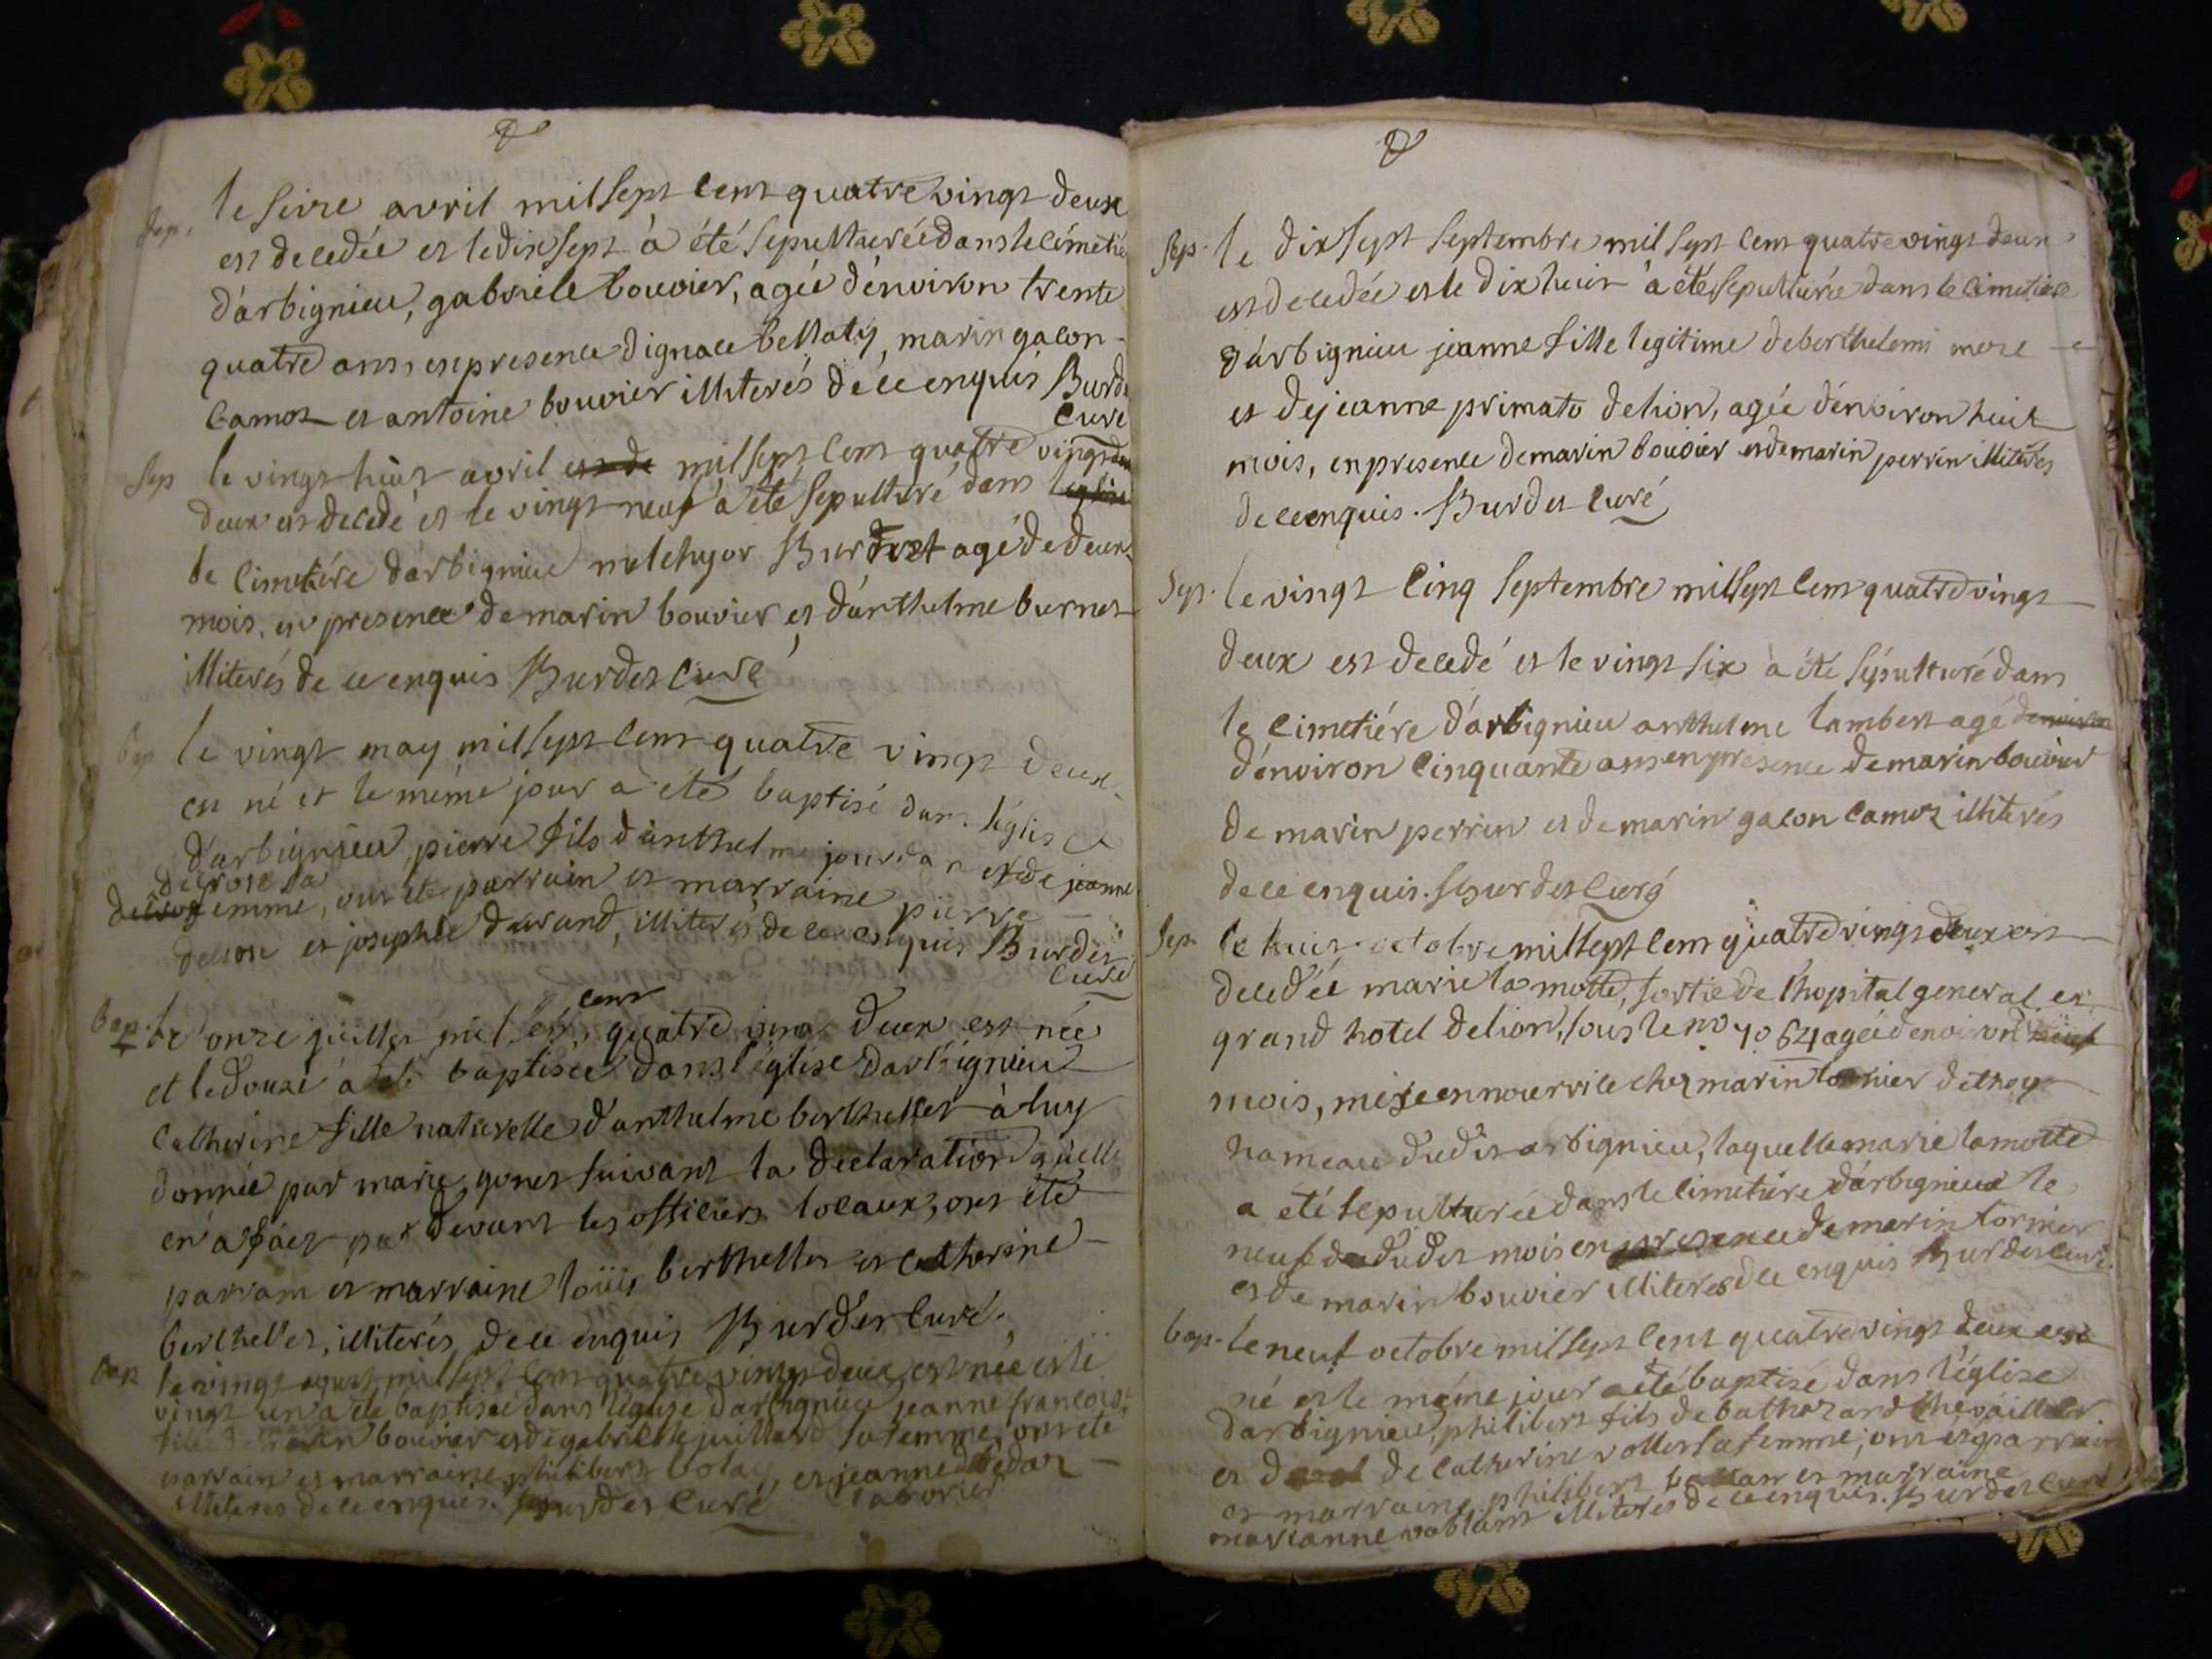 Sep. le seize avril mil sept cent quatre vingt deux
est decedée et le dix sept à été sepulturée dans le cimetié
d'arbignieu, gabriele bouvier, agée d'environ trente
quatre ans en presence d'ignace bellaty, marin galon
camot et antoine bouvier illiterés de ce enquis Burde
Curé
Sep le vingt huit avril est de mil sept cent quatre vingt
deux est decedé et le vingt neuf à été sepulturé dans l'eglise
le cimetiére d'arbignieu melchyor Burdet agé de deux
mois, en presence de marin bouvier et d'anthelme burnet
illiterés de ce enquis Burdet Curé
bap le vingt may mil sept cent quatre vingt deux
est né et le méme jour a été baptisé dans l'église
d'arbignieu, pierre fils d'anthelme jourdan et de jeanne
decrose sa
femme, ont été parrain et marraine pierre
decrose et josephte durand, illiterés de ce enquis Burdet
Curé
bap. le onze juillet mil sept cent quatre vingt deux est née
et le douze à été baptisée dans l'église d'arbignieu
Catherine fille naturelle d'anthelme berthellet à luy
donnée par marie gonet suivant la declaration quelle
en a fáet par devant les officiers locaux, ont été
parrain et marraine loüis berthellet et catherine
berthellet, illiterés de ce enquis Burdet Curé.
bap le vingt aoust mil sept cent quatre vingt deux est née et le
vingt un a été baptisée dans l'eglise d'arbignieu jeanne francoise
fille de marin bouvier et de gabrielle juillard sa femme, ont été
parrain et marraine philibert bolay, et jeanne
illiterés de ce enquis. Burdet Curé
Sep. le dix sept septembre mil sept cent quatre vingt deux
est decedée et le dix huit à été sepulturée dans le cimetiére
d'arbignieu jeanne fille legitime de berthelemi more
et de jeanne primato de lion, agée d'environ huit
mois, en presence de marin bouvier et de marin perrin illiterés
de ce enquis. Burdet Curé
Sep. le vingt cinq septembre mil sept cent quatre vingt
deux est decedé et le vingt six à été sépulturé dans
le cimetiére d'arbignieu anthelme lambert agé denviron
d'environ cinquante ans en presence de marin bouvier
de marin perrin et de marin galon camoz illiterés
de ce enquis. Burdet Curé
Sep. le huit octobre mil sept cent quatre vingt deux est
decedée marie lamotte, sortie de l'hopital general et
grand hotel de lion, sous le no 4064 agée d'environ neuf
mois, mise en nourrice chez marin tornier de thoy
hameau du dit arbignieu, laquelle marie lamotte
a été sepulturée dans le cimetiére d'arbignieu le
neuf du du dit mois en presence de marin tornier
et de marin bouvier illiterés de ce enquis Burdet Curé.
bap. le neuf octobre mil sept cent quatre vingt deux est
né et le méme jour a été baptisé dans l'église
d'arbignieu, philibert fils de balthazard chevailler
et de catherine vollet sa femme, ont été parrain
et marraine philibert et marraine
marianne illiterés de ce enquis. Burdet Curé